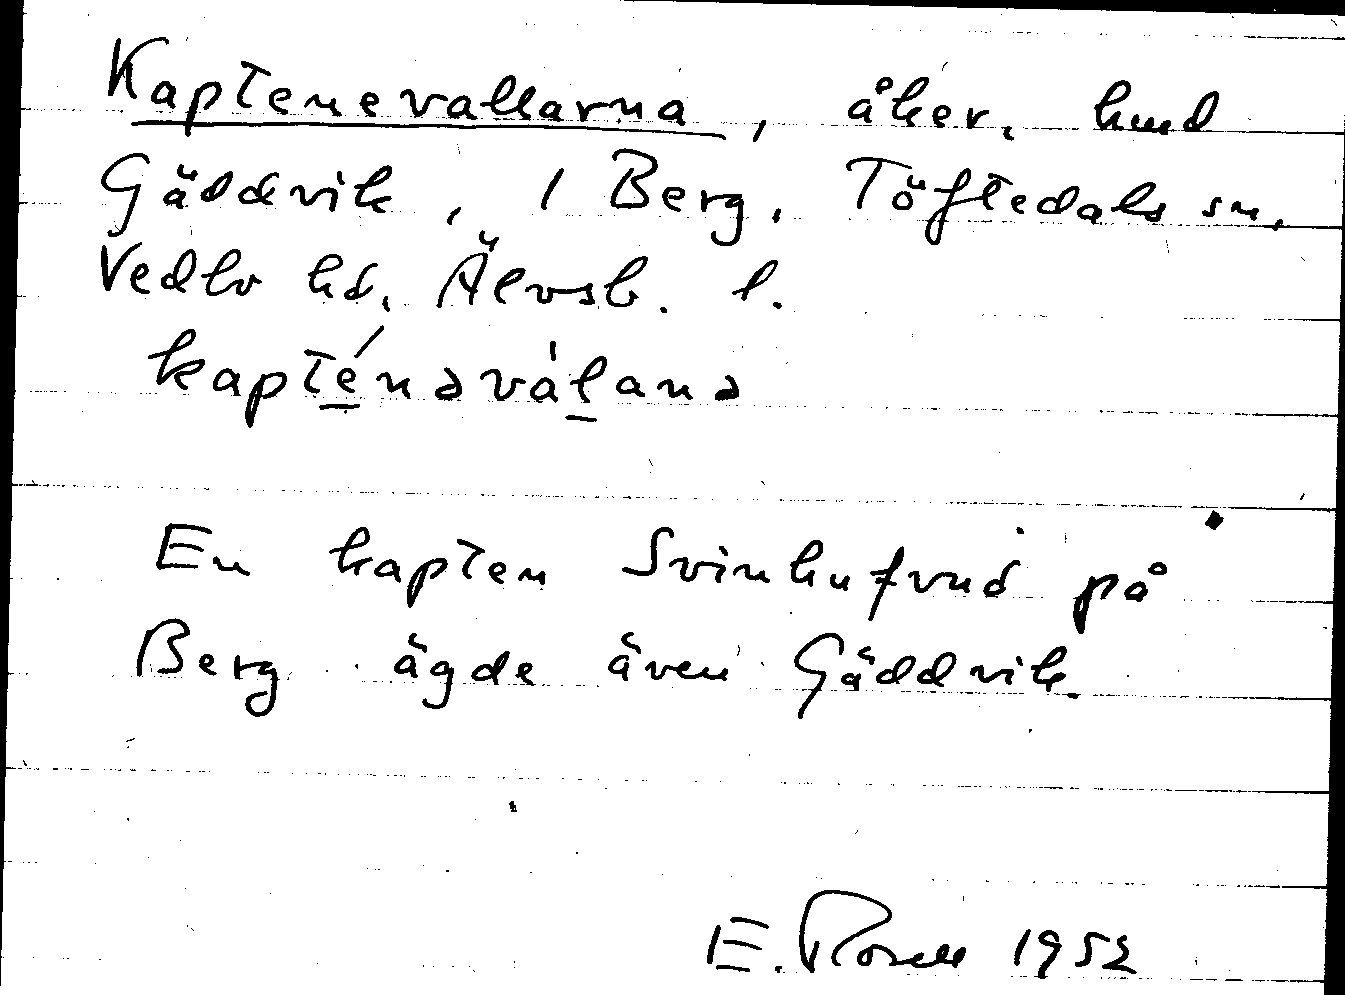 Kaptenevallarna, åker, hmd
Gäddvik, 1 Berg. Töftedals sn,
Vedbo hd, Älvsb. l.
kapténəvàlanə
En kapten Svinhufvud på
Berg ägde även Gäddvik.
E. Rosell 1952